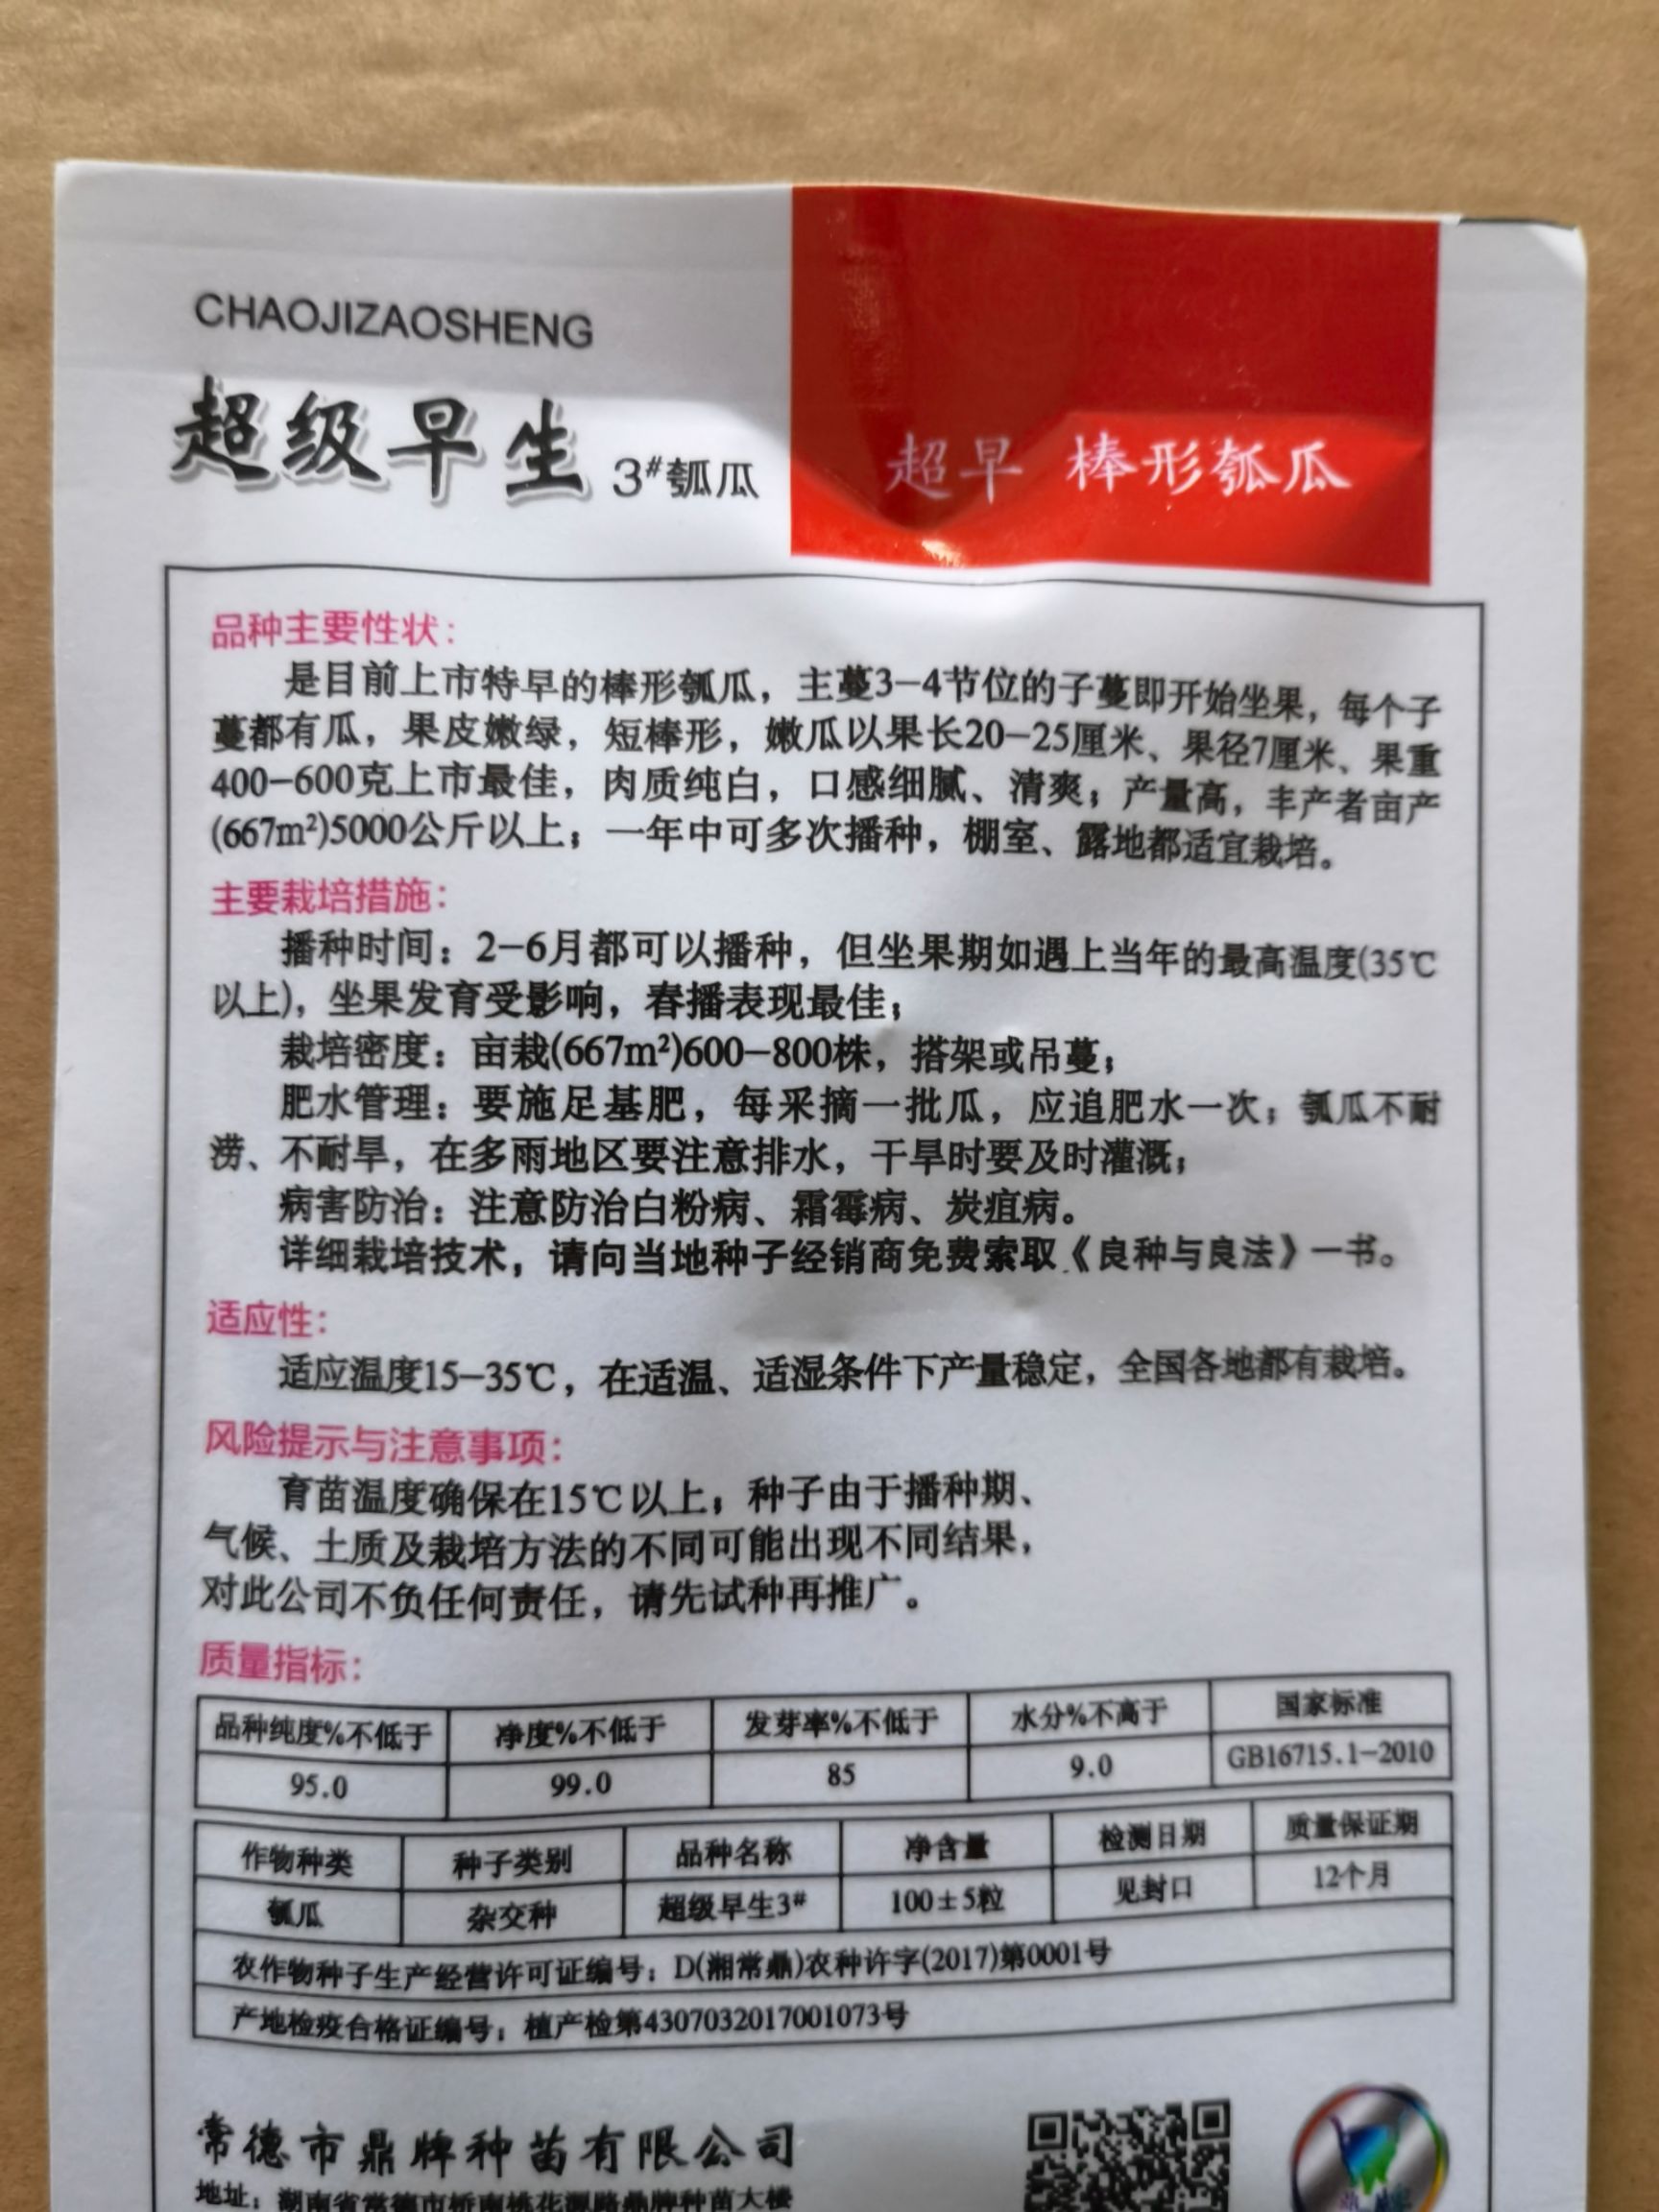 CHAOJIZAOSHENG
超级早生 3#瓠瓜
超早 棒形瓠瓜
品种主要性状：
是目前上市特早的棒形瓠瓜，主蔓3-4节位的子蔓即开始坐果，每个子
蔓都有瓜，果皮嫩绿，短棒形，嫩瓜以果长20-25厘米、果径7厘米、果重
400-600克上市最佳，肉质纯白，口感细腻、清爽；产量高，丰产者亩产
(667m²)5000公斤以上；一年中可多次播种，棚室、露地都适宜栽培。
主要栽培措施：
播种时间：2-6月都可以播种，但坐果期如遇上当年的最高温度(35℃
以上)，坐果发育受影响，春播表现最佳；
栽培密度：亩栽(667m²)600-800株，搭架或吊蔓；
肥水管理：要施足基肥，每采摘一批瓜，应追肥水一次；瓠瓜不耐
涝、不耐旱，在多雨地区要注意排水，干旱时要及时灌溉；
病害防治：注意防治白粉病、霜霉病、炭疽病。
详细栽培技术，请向当地种子经销商免费索取《良种与良法》一书。
适应性：
适应温度15-35℃，在适温、适湿条件下产量稳定，全国各地都有栽培。
风险提示与注意事项：
育苗温度确保在15℃以上；种子由于播种期、
气候、土质及栽培方法的不同可能出现不同结果，
对此公司不负任何责任，请先试种再推广。
质量指标：
品种纯度%不低于 净度%不低于 发芽率%不低于 水分%不高于 国家标准
95.0 99.0 85 9.0 GB16715.1-2010
作物种类 种子类别 品种名称 净含量 检测日期 质量保证期
瓠瓜 杂交种 超级早生3# 100±5粒 见封口 12个月
农作物种子生产经营许可证编号：D(湘常鼎)农种许字(2017)第0001号
产地检疫合格证编号：植产检第4307032017001073号
常德市鼎牌种苗有限公司
地址：湖南省常德市桥南桃花源路鼎牌种苗大楼